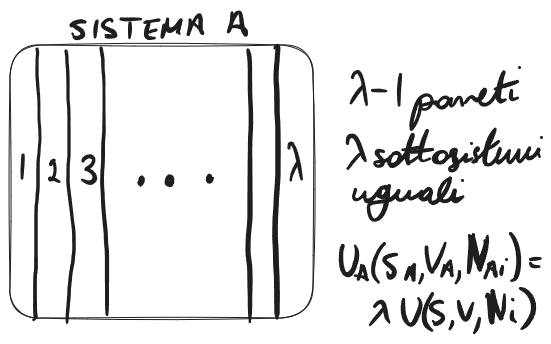 SISTEMA A
1 2 3 ... λ
λ-1 pareti
λ sottosistemi
uguali
U_A(S_A, V_A, N_Ai) =
λ U(S, V, N_i)